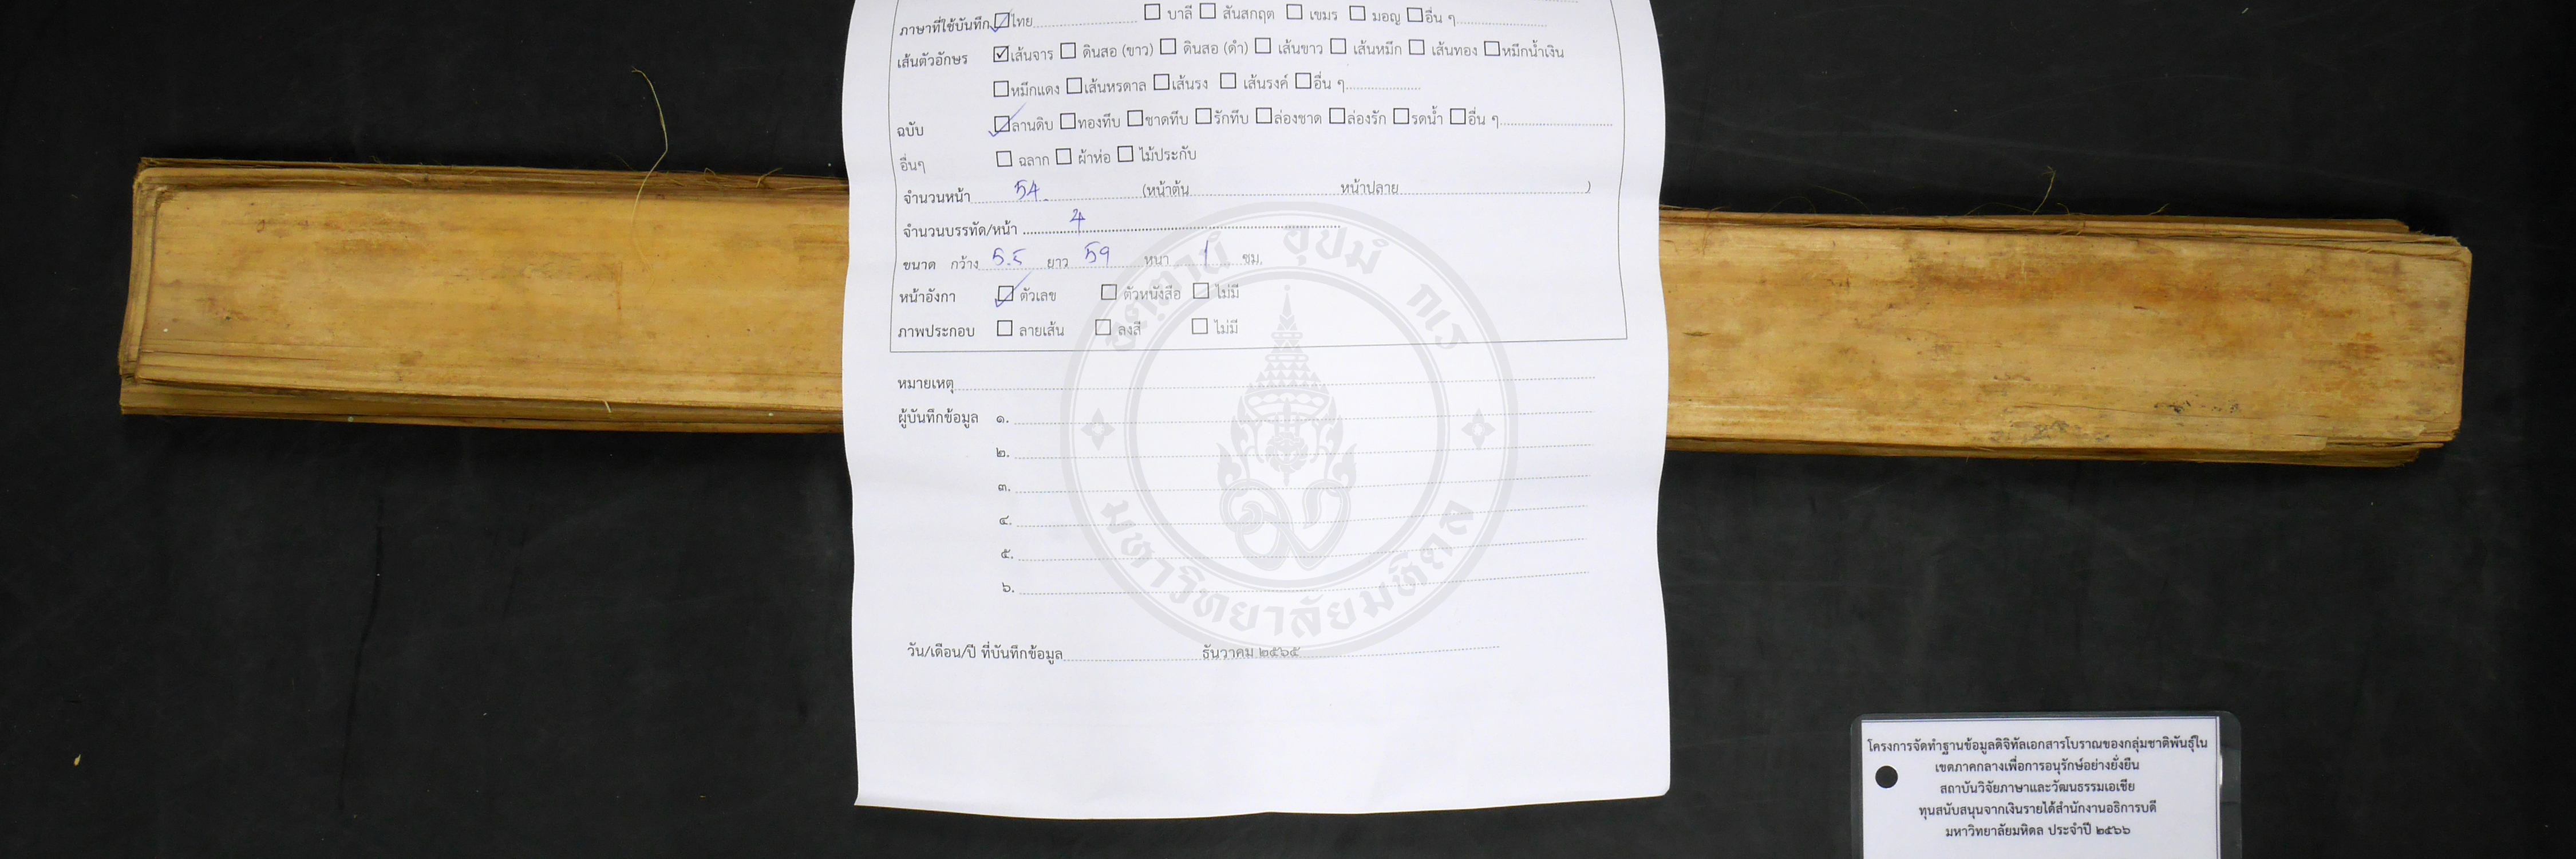 ภาษาที่ใช้บันทึก ☑ไทย........ ☐ บาลี ☐ สันสกฤต ☐ เขมร ☐ มอญ ☐อื่น ๆ........
เส้นตัวอักษร ☑เส้นจาร ☐ ดินสอ (ขาว) ☐ ดินสอ (ดำ) ☐ เส้นขาว ☐ เส้นหมึก ☐ เส้นทอง ☐หมึกน้ำเงิน
☐หมึกแดง ☐เส้นหรดาล ☐เส้นรง ☐ เส้นรงค์ ☐อื่น ๆ........
ฉบับ ☑ลานดิบ ☐ทองทึบ ☐ชาดทึบ ☐รักทึบ ☐ล่องชาด ☐ล่องรัก ☐รดน้ำ ☐อื่น ๆ........
อื่นๆ ☐ ฉลาก ☐ ผ้าห่อ ☐ ไม้ประกับ
จำนวนหน้า 54 (หน้าต้น........ หน้าปลาย........)
จำนวนบรรทัด/หน้า 4
ขนาด กว้าง 5.5 ยาว 59 หนา 1 ซม.
หน้าอังกา ☑ ตัวเลข ☐ ตัวหนังสือ ☐ ไม่มี
ภาพประกอบ ☐ ลายเส้น ☐ ลงสี ☐ ไม่มี
หมายเหตุ........
ผู้บันทึกข้อมูล ๑.........
๒.........
๓.........
๔.........
๕.........
๖.........
วัน/เดือน/ปี ที่บันทึกข้อมูล........ธันวาคม ๒๕๖๕
อตฺตานํ อุปมํ กเร
มหาวิทยาลัยมหิดล
โครงการจัดทำฐานข้อมูลดิจิทัลเอกสารโบราณของกลุ่มชาติพันธุ์ใน
เขตภาคกลางเพื่อการอนุรักษ์อย่างยั่งยืน
สถาบันวิจัยภาษาและวัฒนธรรมเอเชีย
ทุนสนับสนุนจากเงินรายได้สำนักงานอธิการบดี
มหาวิทยาลัยมหิดล ประจำปี ๒๕๖๖